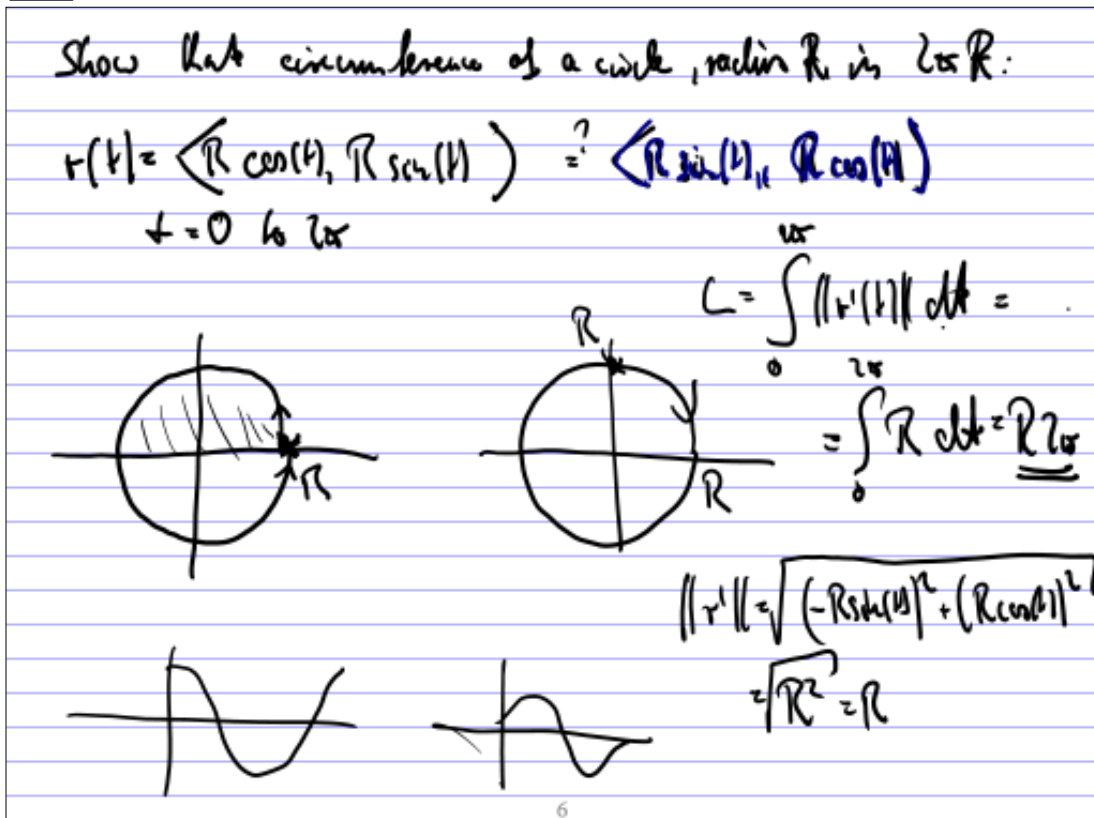 Show that circumference of a circle, radius R, is 2πR:
r(t) = ⟨R cos(t), R sin(t)⟩ =? ⟨R sin(t), R cos(t)⟩
t = 0 to 2π
L = ∫₀^2π ||r'(t)|| dt =
R
= ∫₀^2π R dt = R2π
R
R
||r'|| = √((-R sin(t))² + (R cos(t))²)
= √R² = R
6